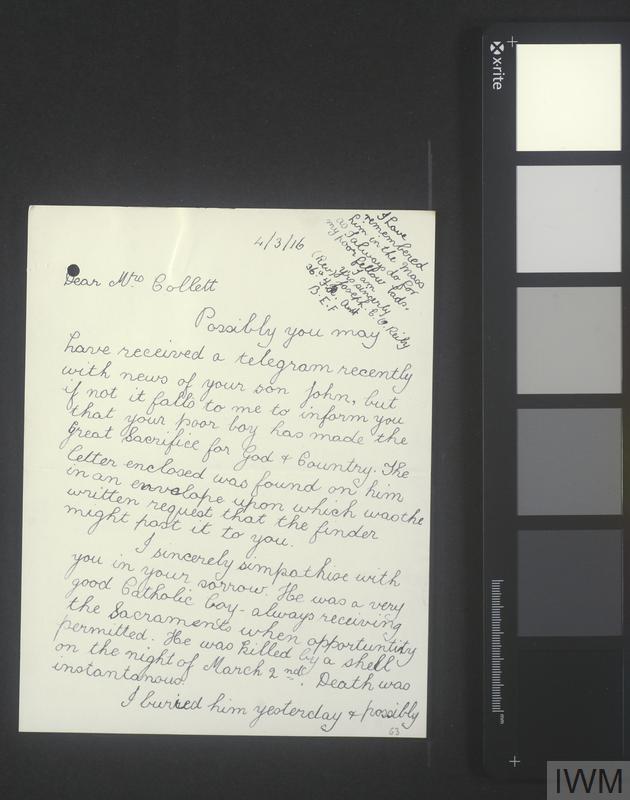 4/3/16
I have
remembered
him in the mass
as I always do for
my poor fellow lads.
I am
yrs sincerely
(Rev) Joseph. C. Reiby
36
B.E.F
Dear Mrs Collett
Possibly you may
have received a telegram recently
with news of your son John, but
if not it falls to me to inform you
that your poor boy has made the
great sacrifice for God & Country. The
letter enclosed was found on him
in an envelope upon which was the
written request that the finder
might post it to you.
I sincerely simpathise with
you in your sorrow. He was a very
good Catholic boy - always receiving
the Sacraments when opportuntity
permitted. He was killed by a shell
on the night of March 2nd. Death was
instantanous.
I buried him yesterday & possibly
63
x-rite
mm
IWM